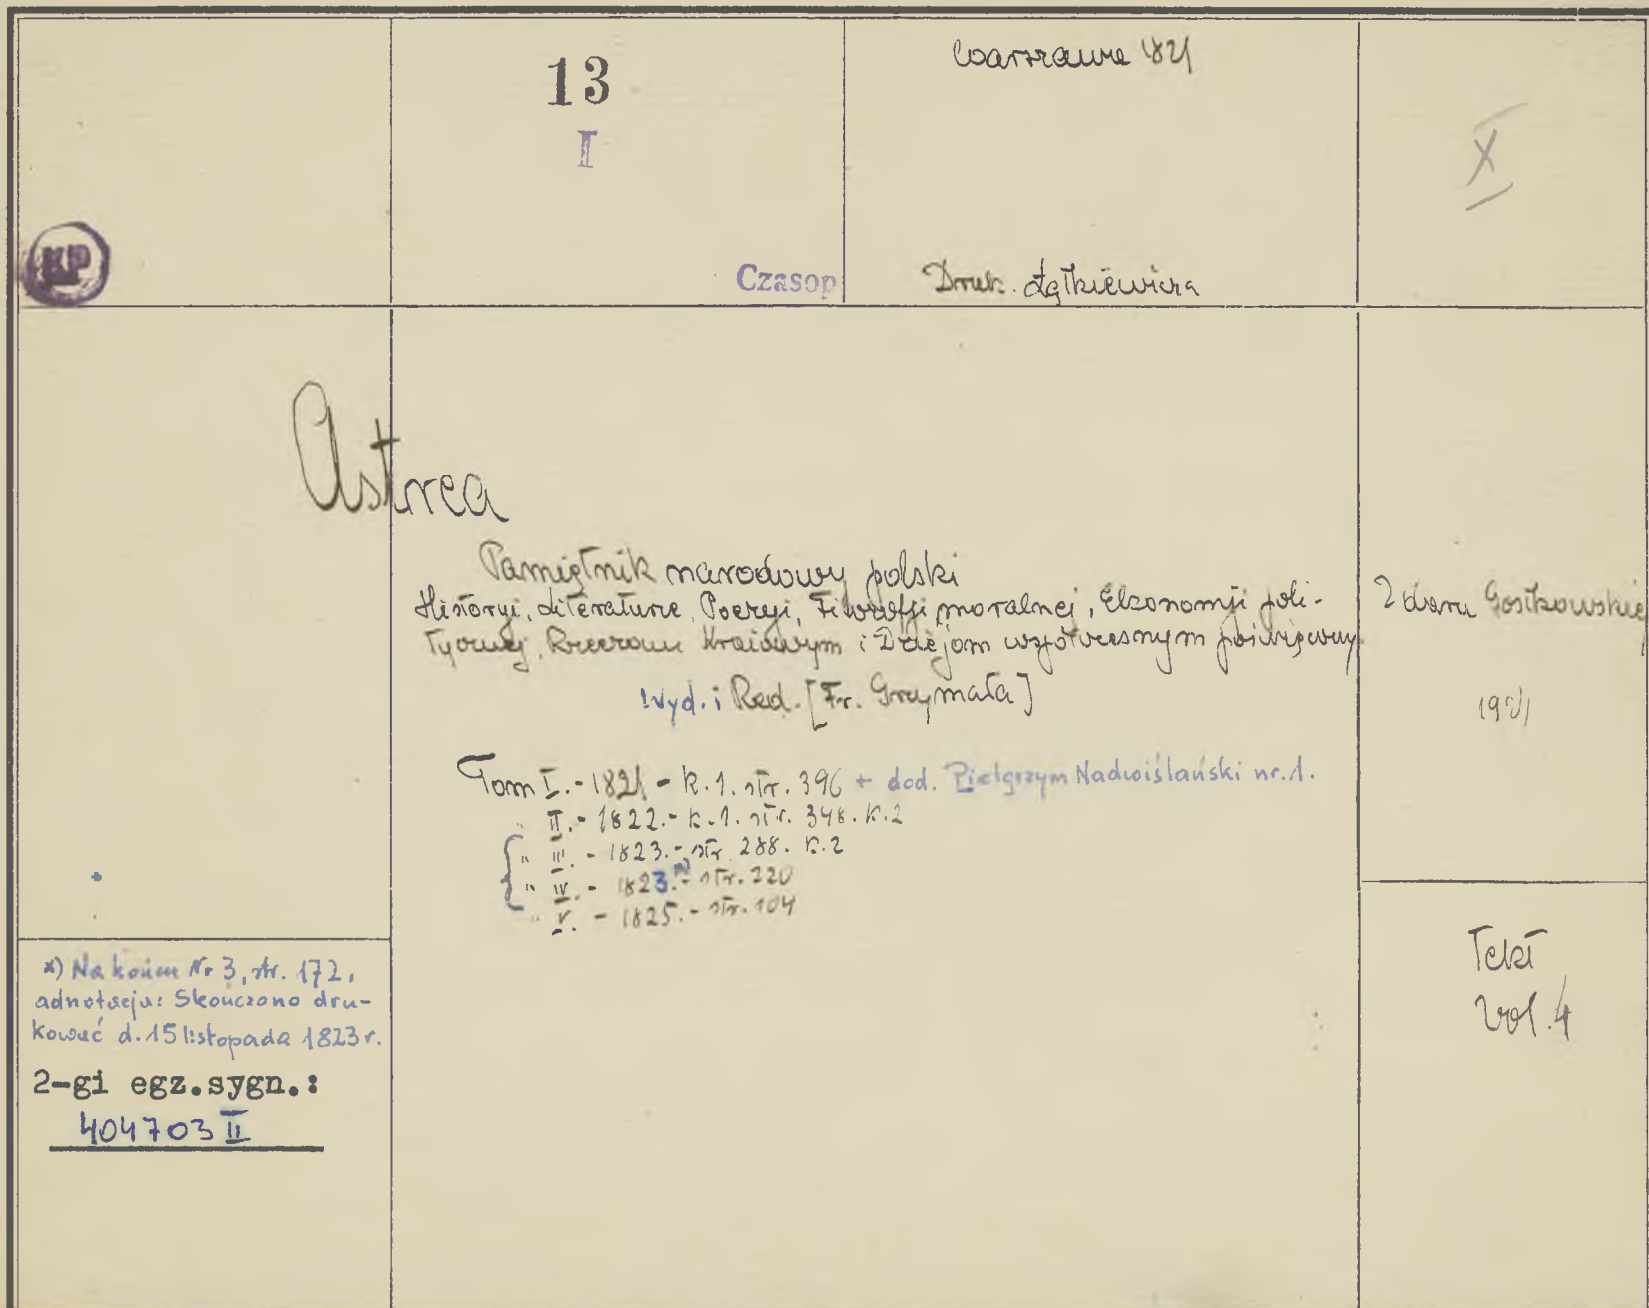 13
I
Czasop
Warszawa 1821
Druk. Łątkiewicza
X
KP
Astrea
Pamiętnik narodowy polski
Historyi, Literaturze, Poezyi, Filozofji moralnej, Ekonomji poli-
tycznej, Rzeczom Kraiowym i Dziejom współczesnym poświęcony
Wyd. i Red. [Fr. Grzymała]
Tom I. - 1821 - k. 1. str. 396 + dod. Pielgrzym Nadwiślański nr. 1.
" II. - 1822. - k. 1. str. 348. k. 2
" III. - 1823. - str. 288. k. 2
" IV. - 1823. x) - str. 220
" V. - 1825. - str. 104
Z daru Gostkowskiej
Tekt
vol. 4
x) Na końcu Nr 3, str. 172,
adnotacja: Skończono dru-
kować d. 15 listopada 1823 r.
2-gi egz.sygn.:
404703 II